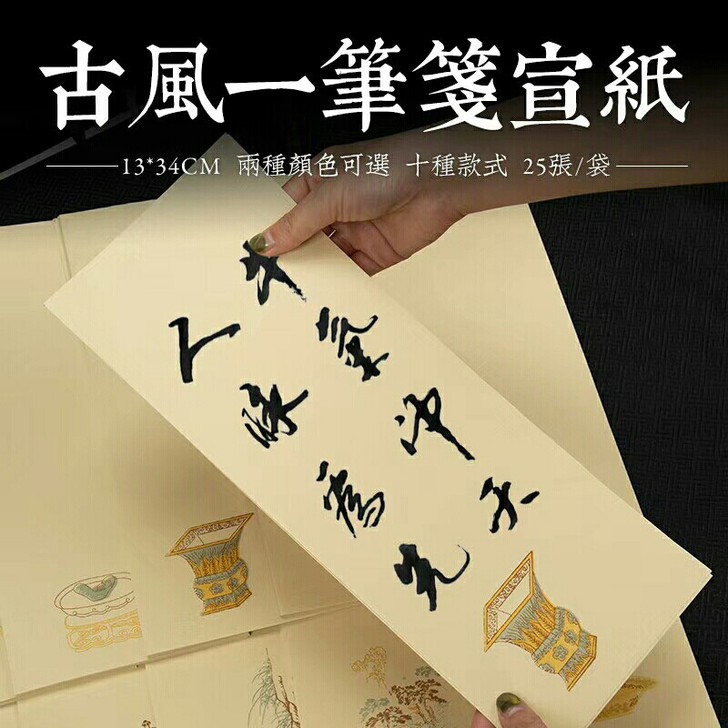 古風一筆箋宣紙
13*34CM 兩種顏色可選 十種款式 25張/袋
牛氣沖天